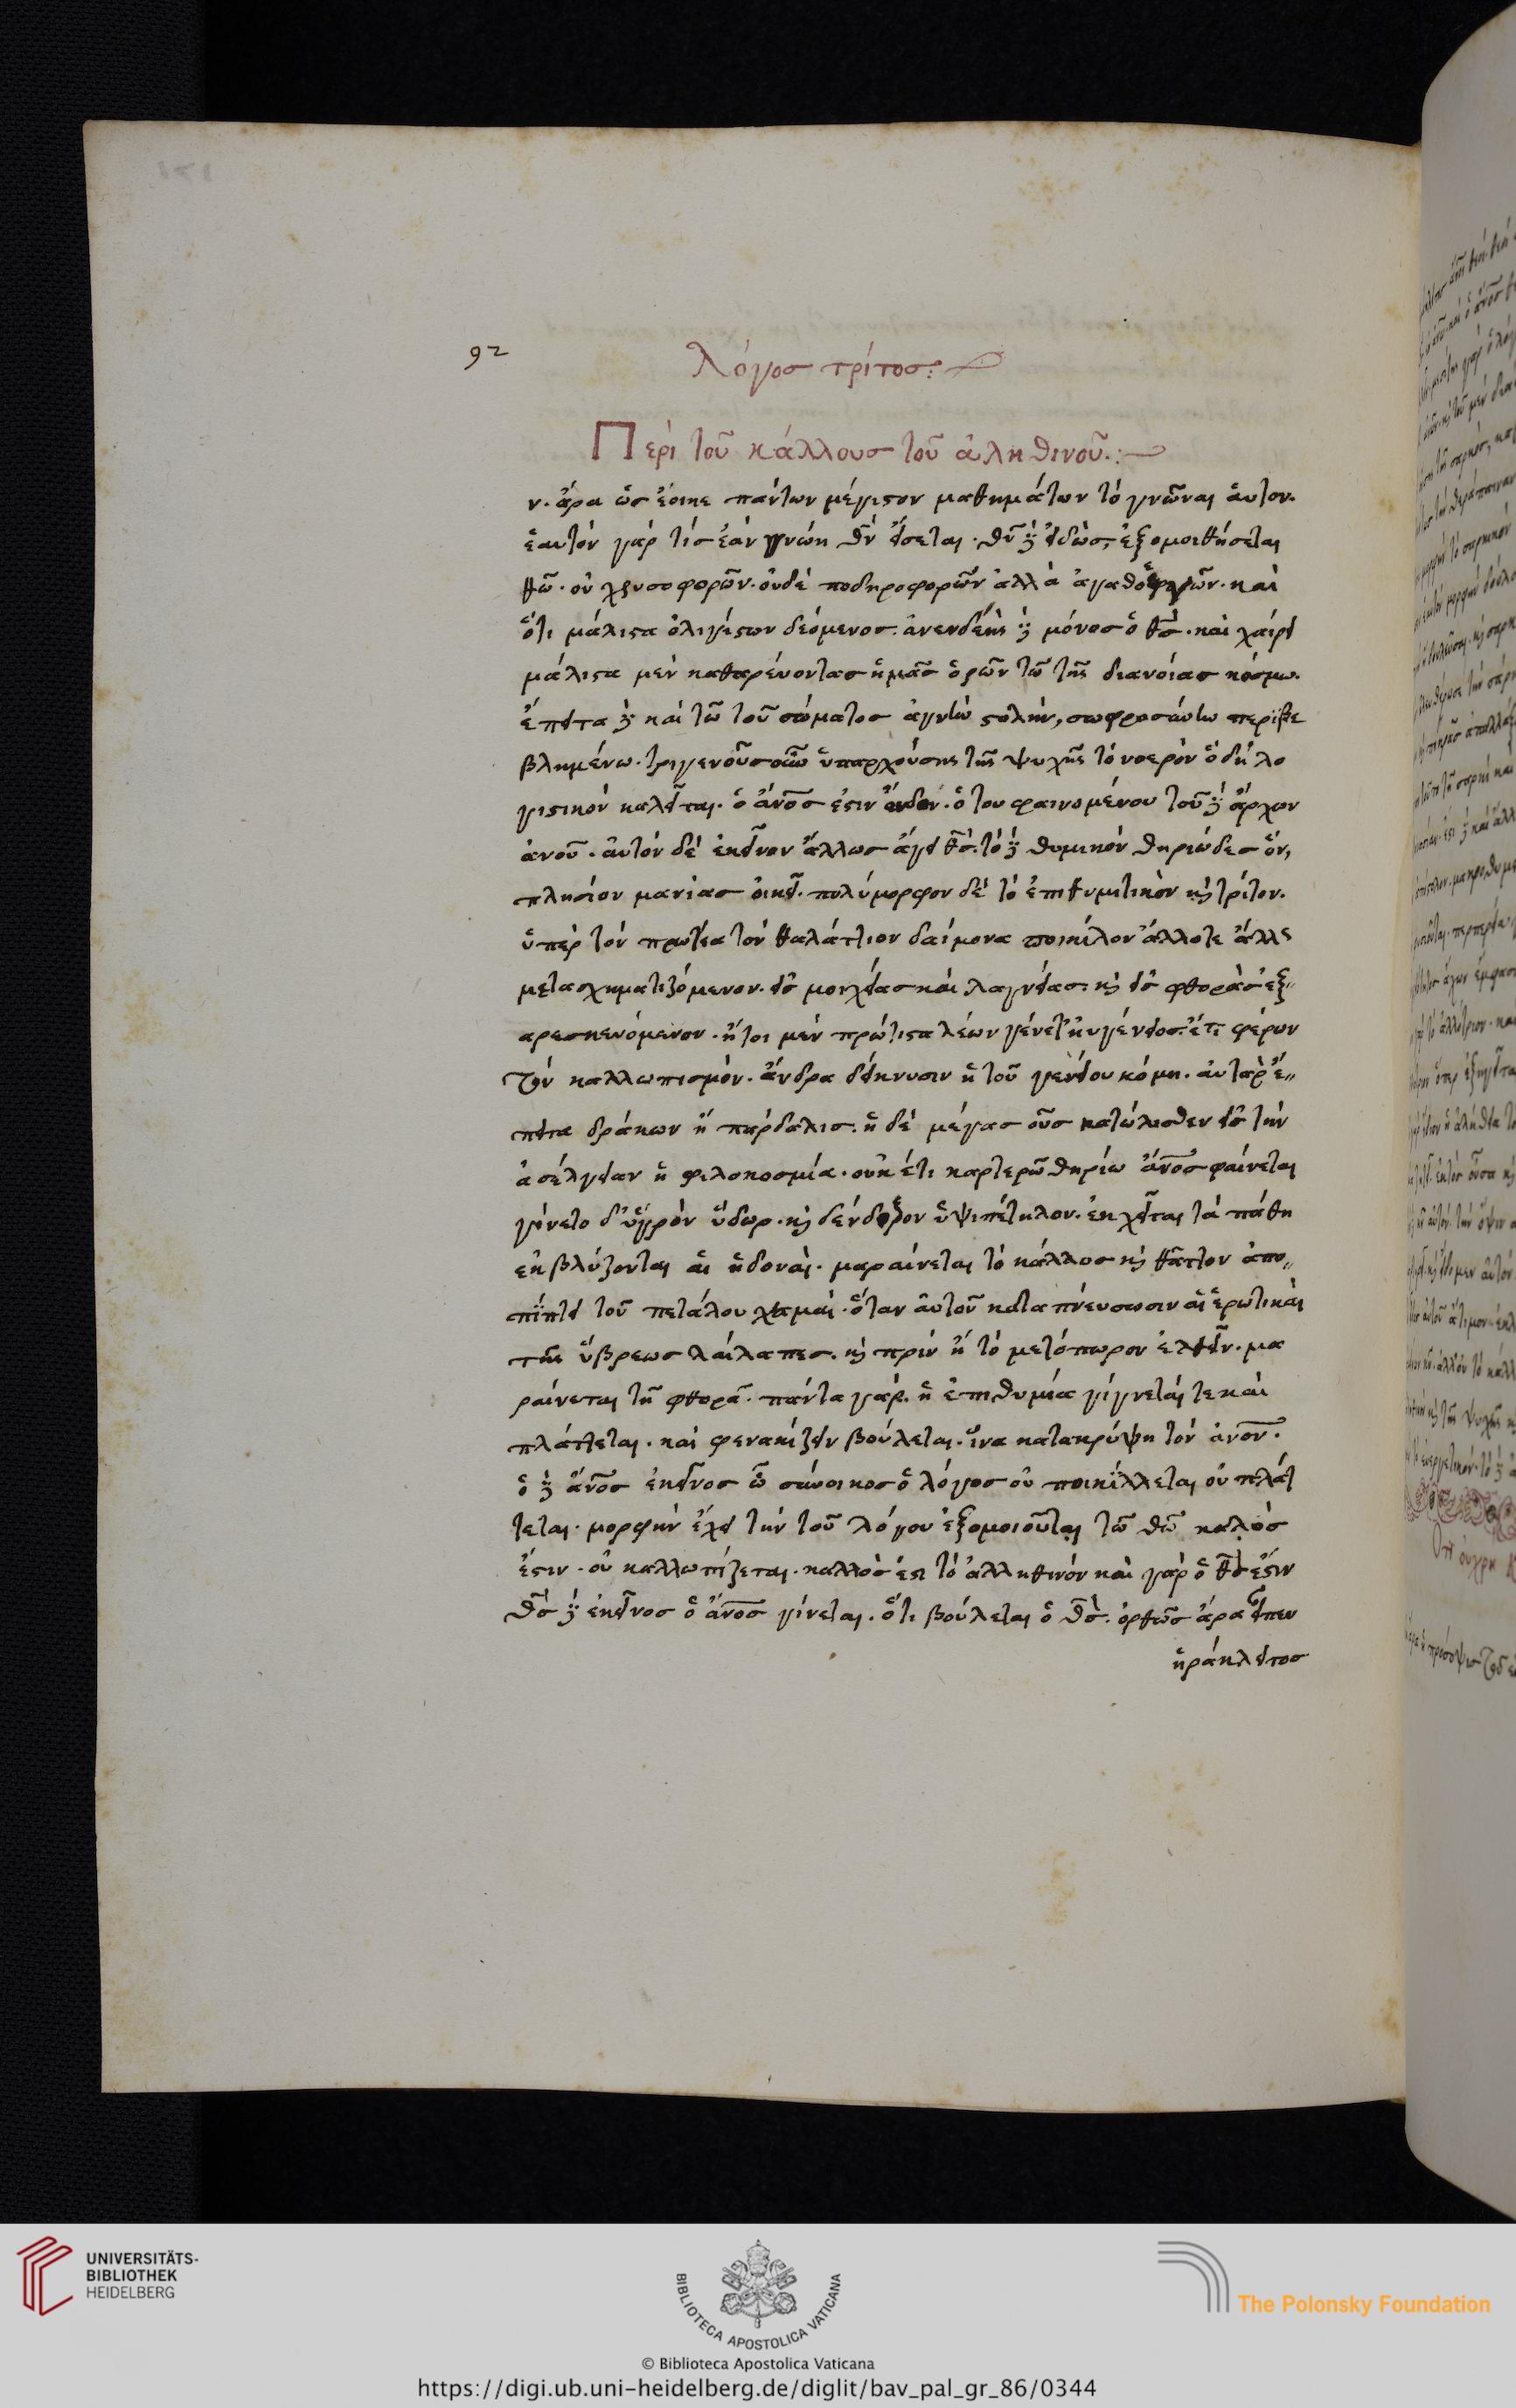 92
Λόγοσ τρίτοσ:
Περὶ τοῦ κάλλουσ τοῦ ἀληθινοῦ.:
ν. ἄρα ὡσ ἔοικε πάντων μέγιστον μαθημάτων τὸ γνῶναι ἁυτον.
ἑαυτὸν γάρ τίσ ἐάν γνώη θν̄ εἴσεται. θν̄ δὲ εἰδὼσ, ἐξομοιθήσεται
θῶ. οὐ χρυσοφορῶν. οὐδὲ ποδηροφορῶν ἀλλὰ ἀγαθοεργῶν. καὶ
ὅτι μάλιστα ὀλιγίστων δεόμενοσ. ἀνενδεὴς δὲ μόνοσ ὁ θσ̄. καὶ χαίρει
μάλιστα μὲν καθαρεύοντασ ἡμᾶσ ὁρῶν τῶ τῆς διανοίασ κόσμω.
ἔπειτα δὲ καὶ τῶ τοῦ σώματοσ ἁγνὴν στολὴν, σωφροσύνην περιβε
βλημένω. τριγενοῦσ οὖν ὑπαρχούσης τῆς ψυχῆς τὸ νοερὸν ὃ δὴ λο
γιστικὸν καλεῖται. ὁ ἄνοσ̄ ἐστιν ἔνδον. ὁ του φαινομένου τοῦ δὲ ἄρχων
ἀνοῡ. ἀυτὸν δὲ ἐκεῖνον ἄλλωσ ἄγει θσ̄. τὸ δὲ θυμικὸν θηριῶδεσ ὂν,
πλησίον μανίασ οἰκεῖ. πολύμορφον δὲ τὸ ἐπιθυμιτικὸν καὶ τρίτον.
ὑπὲρ τὸν πρωτέα τὸν θαλάττιον δαίμονα ποικίλον ἄλλοτε ἄλλς
μετασχηματιζόμενον. εἰσ μοιχείασ καὶ λαγνείασ. καὶ εἰσ φθορὰσ ἐξ
αρεσκευόμενον. ἤτοι μὲν πρώτιστα λέων γένετ ἠυγένειοσ. ἔτι φέρων
τὸν καλλωπισμὸν. ἄνδρα δείκνυσιν ἡ τοῦ γενείου κόμη. αὐτὰρ ἔ
πειτα δράκων ἢ πάρδαλισ. ἠ δὲ μέγασ οὖσ κατώλισθεν εἰσ τὴν
ἀσέλγειαν ἡ φιλοκοσμία. οὐκ ἔτι καρτερῶ θηρίω ἄνοσ̄ φαίνεται
γίνετο δ' ὑγρὸν ὕδωρ. καὶ δένδρον ὑψιπέτηλον. ἐκχεῖται τὰ πάθη
ἐκβλύζονται αἱ ἡδοναί. μαραίνεται τὸ κάλλοσ καὶ θᾶττον ἀπο
πίπτει τοῦ πετάλου χαμαὶ. ὅταν ἀυτοῦ καταπνεύσωσιν αἱ ἐρωτικαὶ
τῆς ὕβρεωσ λαίλαπεσ. καὶ πρὶν ἢ τὸ μετόπωρον ἐλθεῖν. μα
ραίνεται τῇ φθορᾶ. πάντα γὰρ. ἡ ἐπιθυμία γίγνεταί τε καὶ
πλάττεται. καὶ φενακίζειν βούλεται. ἵνα κατακρύψη τὸν ἀνον̄.
ὁ δὲ ἄνοσ̄ ἐκεῖνοσ ὧ σύνοικοσ ὁ λόγοσ οὐ ποικίλλεται οὐ πλάτ
τεται. μορφὴν ἔχει τὴν τοῦ λόγου ἐξομοιοῦται τῶ θῶ καλὸσ
ἐστιν. οὐ καλλωπίζεται. καλλὸσ ἐστι τὸ ἀλληθινὸν καὶ γὰρ ὁ θσ̄ ἐστιν
θσ̄ δὲ ἐκεῖνοσ ὁ ἄνοσ̄ γίνεται. ὅτι βούλεται ὁ θσ̄. ὀρθῶσ ἄρα εἶπεν
ἡράκλειτοσ
UNIVERSITÄTS-
BIBLIOTHEK
HEIDELBERG
BIBLIOTECA APOSTOLICA VATICANA
The Polonsky Foundation
© Biblioteca Apostolica Vaticana
https://digi.ub.uni-heidelberg.de/diglit/bav_pal_gr_86/0344